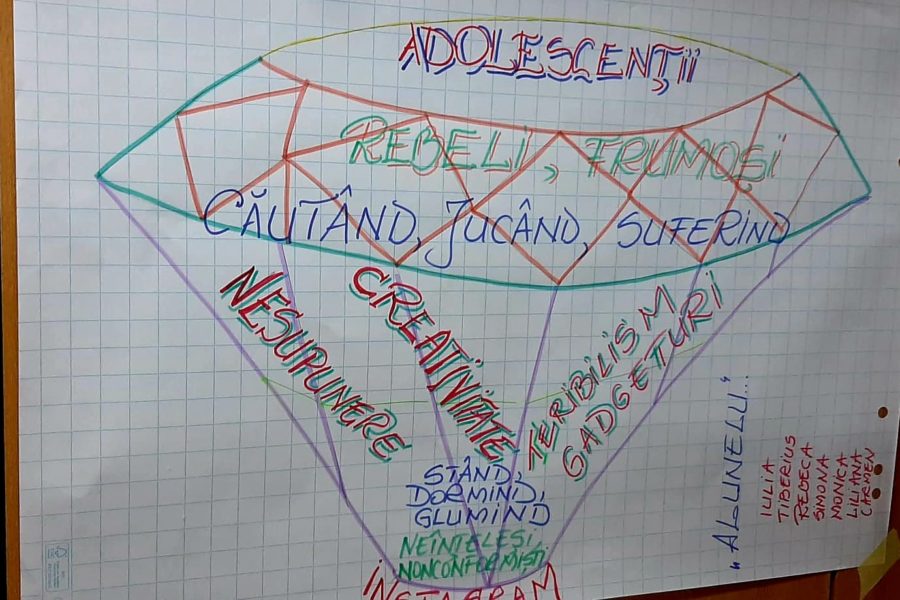 ADOLESCENȚII
REBELI, FRUMOȘI
CĂUTÂND, JUCÂND, SUFERIND
NESUPUNERE
CREATIVITATE
TERIBILISM
GADGETURI
STÂND,
DORMIND,
GLUMIND
NEÎNȚELEȘI
NONCONFORMIȘTI
INSTAGRAM
„ALUNELU..."
IULIA
TIBERIUS
REBECA
SIMONA
MONICA
LILIANA
CARMEN